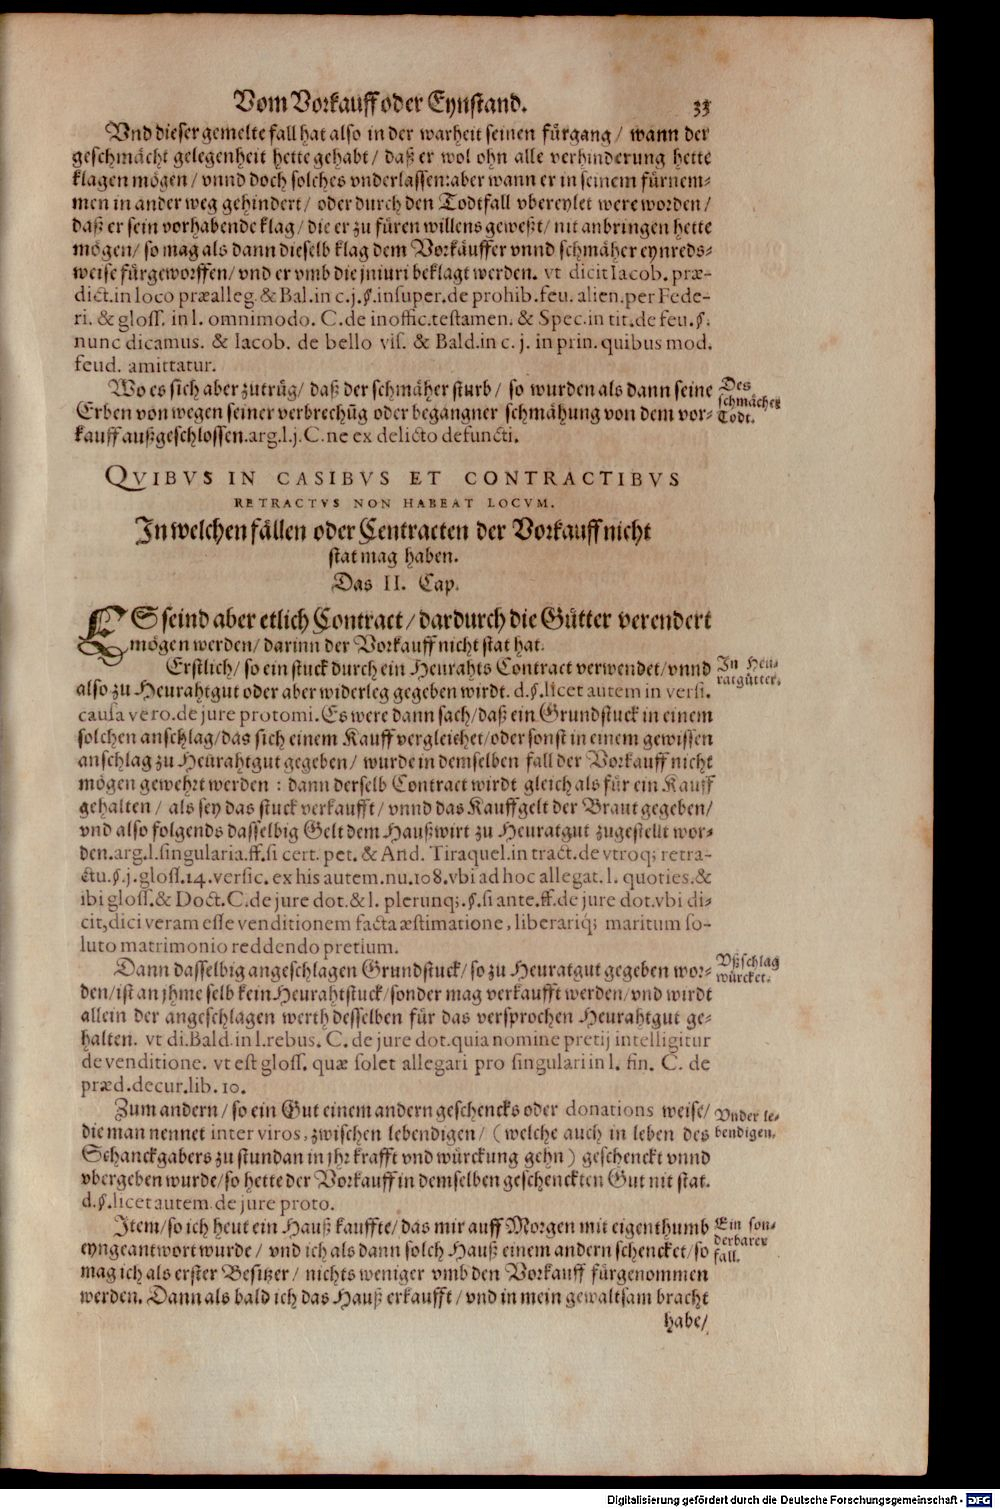 Vom Vorkauff oder Eynstand. 33
Vnd dieser gemelte fall hat also in der warheit seinen fürgang / wann der
geschmächt gelegenheit hette gehabt / daß er wol ohn alle verhinderung hette
klagen mögen / vnnd doch solches vnderlassen: aber wann er in seinem fürnem-
men in ander weg gehindert / oder durch den Todtfall vbereylet were worden /
daß er sein vorhabende klag / die er zu füren willens geweßt / nit anbringen hette
mögen / so mag als dann dieselb klag dem Vorkäuffer vnnd schmäher eynreds-
weise fürgeworffen / vnd er vmb die iniuri beklagt werden. vt dicit Iacob. præ-
dict. in loco præalleg. & Bal. in c. j. §. insuper. de prohib. feu. alien. per Fede-
ri. & gloss. in l. omnimodo. C. de inoffic. testamen. & Spec. in tit. de feu. §.
nunc dicamus. & Iacob. de bello vis. & Bald. in c. j. in prin. quibus mod.
feud. amittatur.
Wo es sich aber zutrüg / daß der schmäher sturb / so wurden als dann seine
Erben von wegen seiner verbrechũg oder begangner schmähung von dem vor-
kauff außgeschlossen. arg. l. j. C. ne ex delicto defuncti.
Des
schmächer
Todt.
QVIBVS IN CASIBVS ET CONTRACTIBVS
RETRACTVS NON HABEAT LOCVM.
In welchen fällen oder Contracten der Vorkauff nicht
stat mag haben.
Das II. Cap.
ES seind aber etlich Contract / dardurch die Gütter verendert
mögen werden / darinn der Vorkauff nicht stat hat.
Erstlich / so ein stuck durch ein Heurahts Contract verwendet / vnnd
also zu Heurahtgut oder aber widerleg gegeben wirdt. d. §. licet autem in versi.
causa vero. de jure protomi. Es were dann sach / daß ein Grundstuck in einem
solchen anschlag / das sich einem Kauff vergleichet / oder sonst in einem gewissen
anschlag zu Heurahtgut gegeben / wurde in demselben fall der Vorkauff nicht
mögen gewehrt werden : dann derselb Contract wirdt gleich als für ein Kauff
gehalten / als sey das stuck verkaufft / vnnd das Kauffgelt der Braut gegeben /
vnd also folgends dasselbig Gelt dem Haußwirt zu Heuratgut zugestellt wor-
den. arg. l. singularia. ff. si cert. pet. & And. Tiraquel. in tract. de vtroq; retra-
ctu. §. j. gloss. 14. versic. ex his autem. nu. 108. vbi ad hoc allegat. l. quoties. &
ibi gloss. & Doct. C. de jure dot. & l. plerunq;. §. si ante. ff. de jure dot. vbi di-
cit, dici veram esse venditionem facta æstimatione, liberariq; maritum so-
luto matrimonio reddendo pretium.
In Heu-
ratgütter.
Dann dasselbig angeschlagen Grundstuck / so zu Heuratgut gegeben wor-
den / ist an jhme selb kein Heurahtstuck / sonder mag verkaufft werden / vnd wirdt
allein der angeschlagen werth desselben für das versprochen Heurahtgut ge-
halten. vt di. Bald. in l. rebus. C. de jure dot. quia nomine pretij intelligitur
de venditione. vt est gloss. quæ solet allegari pro singulari in l. fin. C. de
præd. decur. lib. 10.
Vßschlag
würcket.
Zum andern / so ein Gut einem andern geschencks oder donations weise /
die man nennet inter viros, zwischen lebendigen / ( welche auch in leben des
Schanckgabers zu stundan in jhr krafft vnd würckung gehn ) geschenckt vnnd
vbergeben wurde / so hette der Vorkauff in demselben geschenckten Gut nit stat.
d. §. licet autem. de jure proto.
Vnder le-
bendigen.
Item / so ich heut ein Hauß kauffte / das mir auff Morgen mit eigenthumb
eyngeantwort wurde / vnd ich als dann solch Hauß einem andern schencket / so
mag ich als erster Besitzer / nichts weniger vmb den Vorkauff fürgenommen
werden. Dann als bald ich das Hauß erkaufft / vnd in mein gewaltsam bracht
Ein son-
derbarer
fall.
habe /
Digitalisierung gefördert durch die Deutsche Forschungsgemeinschaft - DFG